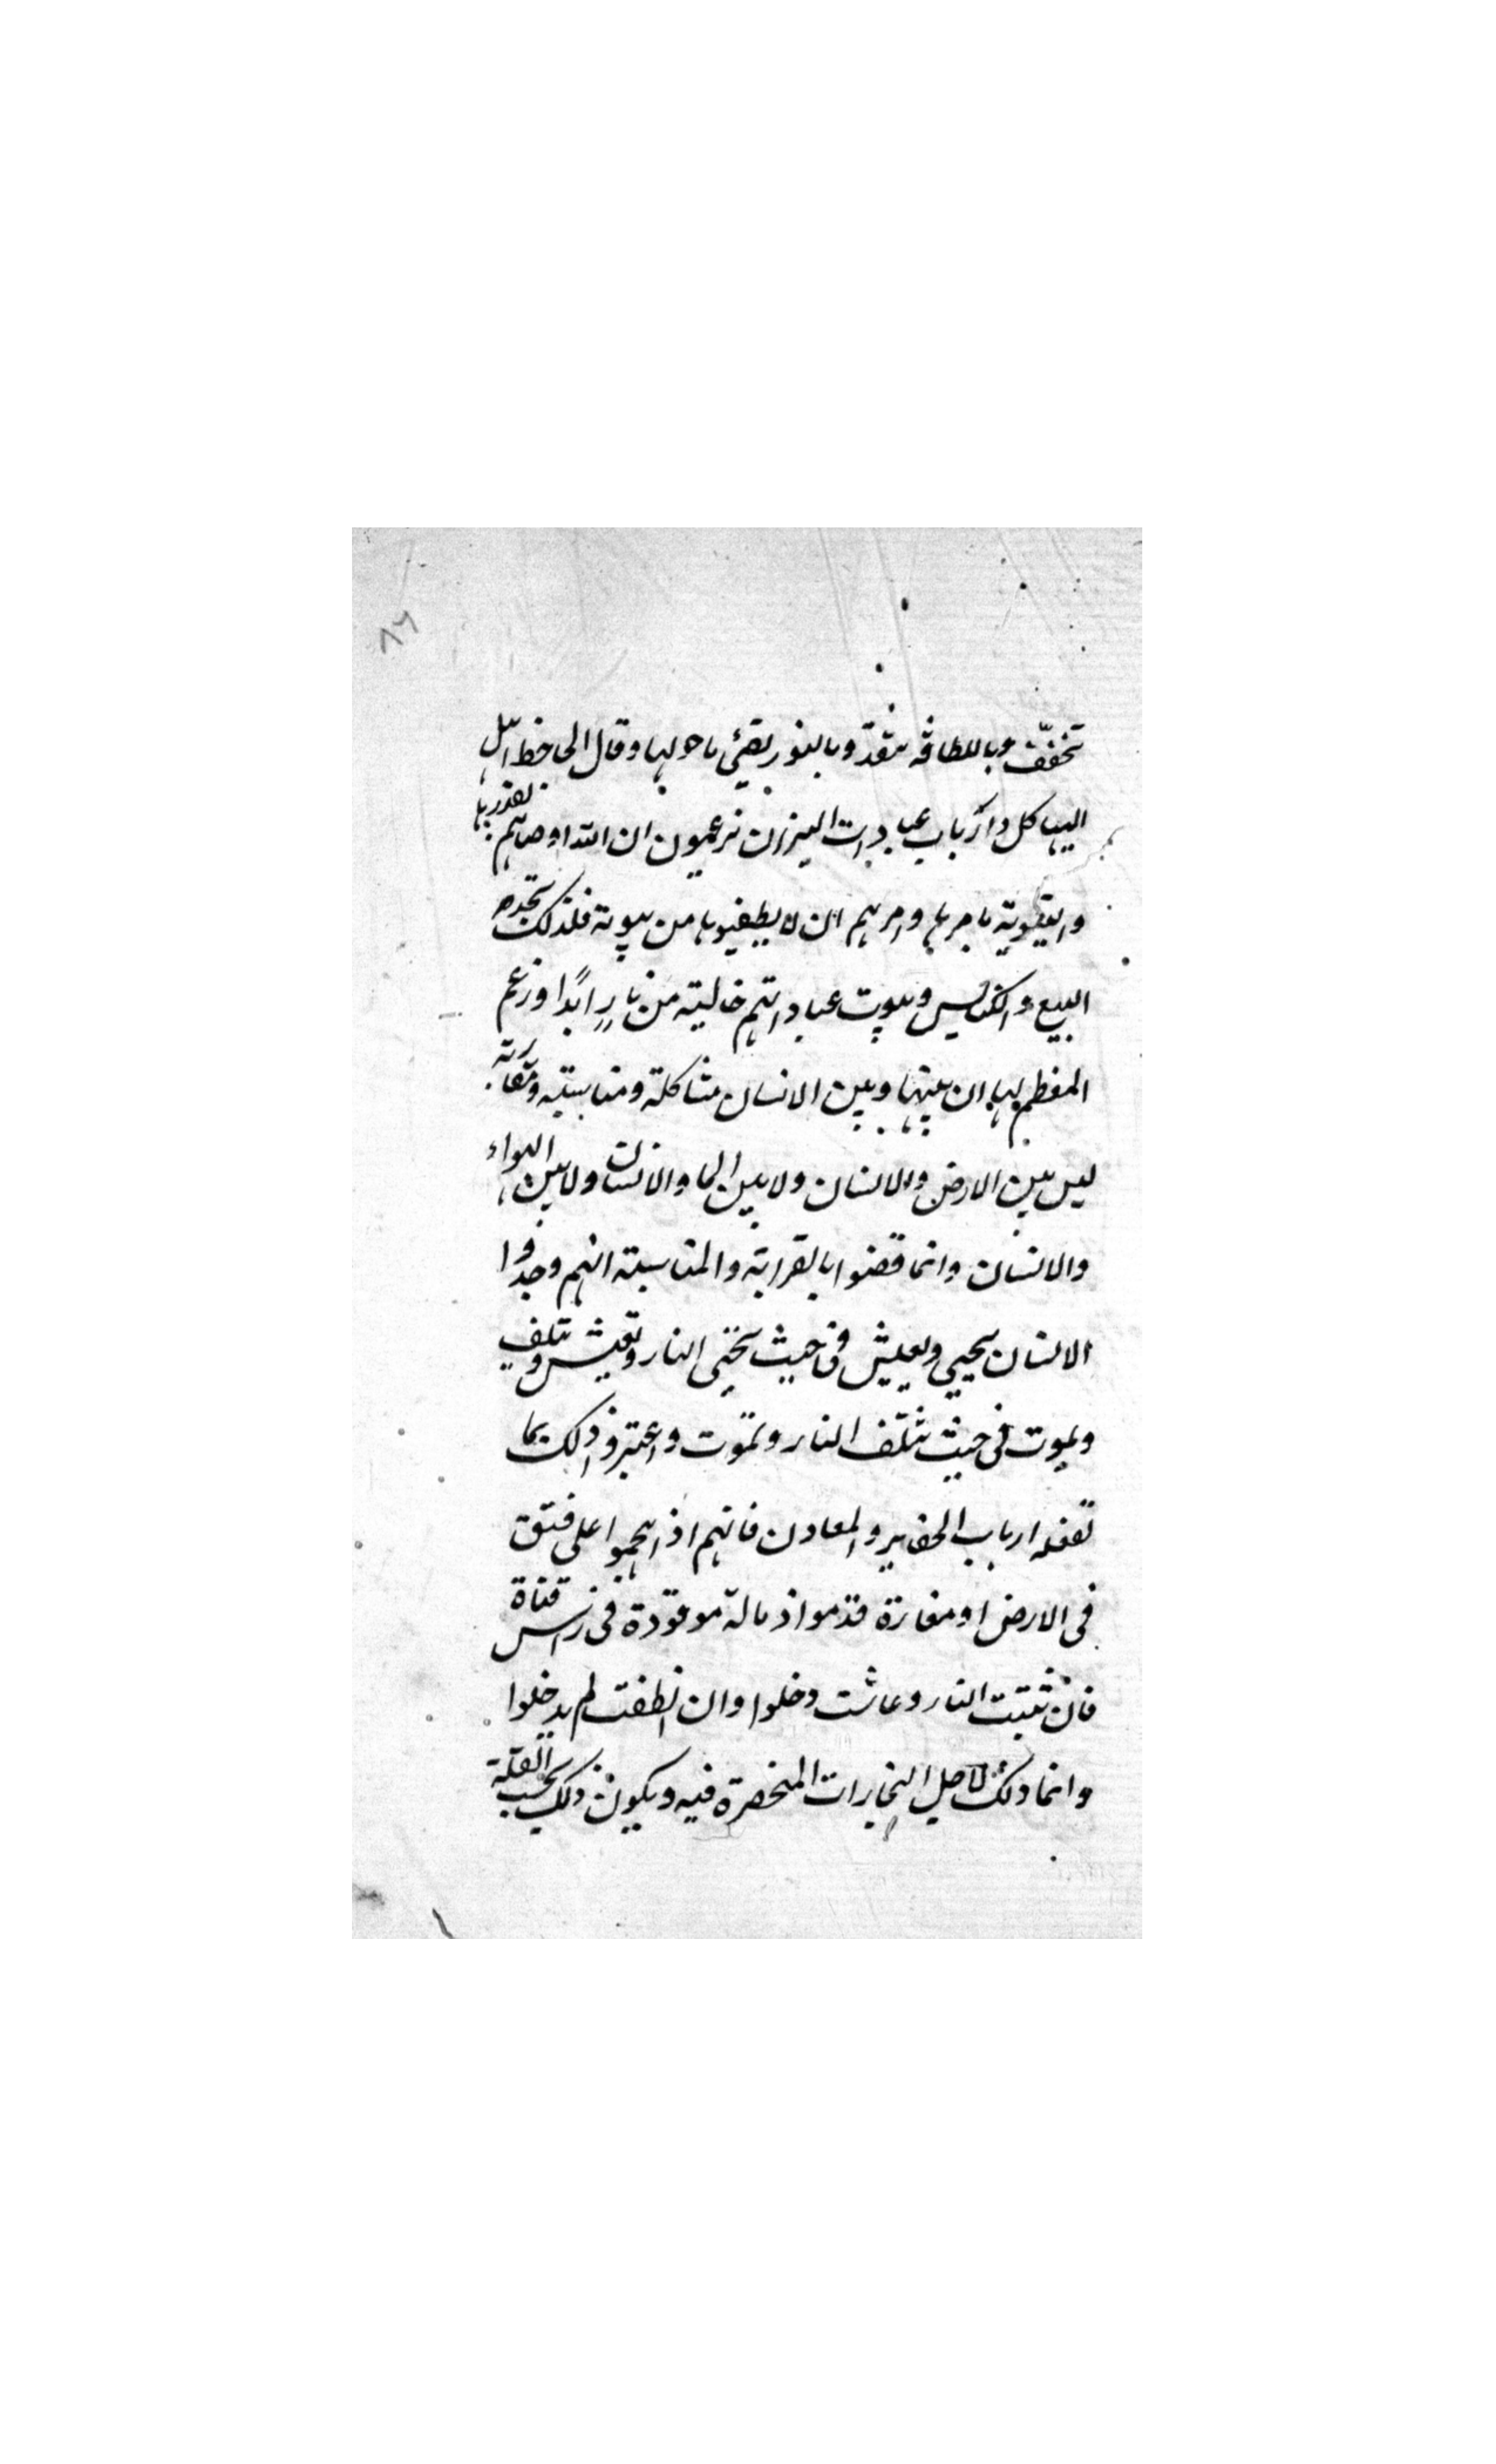 ٨٦
تخفف وباللطافة تتقد وبالنور يضئ ما حولها وقال الجاحظ اهل
الهياكل وارباب عبادات النيران يزعمون ان الله اوصاهم بها
والتقوية بامرها وامرهم ان لا يطفيوها من بيوته فلذلك تجده
البيع والكنايس وبيوت عباداتهم خالية من نارٍ ابدًا وزعم
المعظم لها ان بينها وبين الانسان مشاكلة ومناسبة ومقاربة
ليس بين الارض والانسان ولا بين الما والانسان ولا بين الهواء
والانسان وانما قضوا بالقرابة والمناسبة انهم وجدوا
الانسان يحيى ويعيش فى حيث تحيى النار وتعيش وتلف
ويموت فى حيث تتلف النار وتموت واعتبروا ذلك بما
تفعله ارباب الحفاير والمعادن فانهم اذا هجموا على فتق
فى الارض او مغارة قدموا ذبالة موقودة فى راس قناة
فان ثبتت النار وعاشت دخلوا وان انطفت لم يدخلوا
وانما ذلك لاجل البخارات المنحصرة فيه ويكون ذلك بحسب القلة